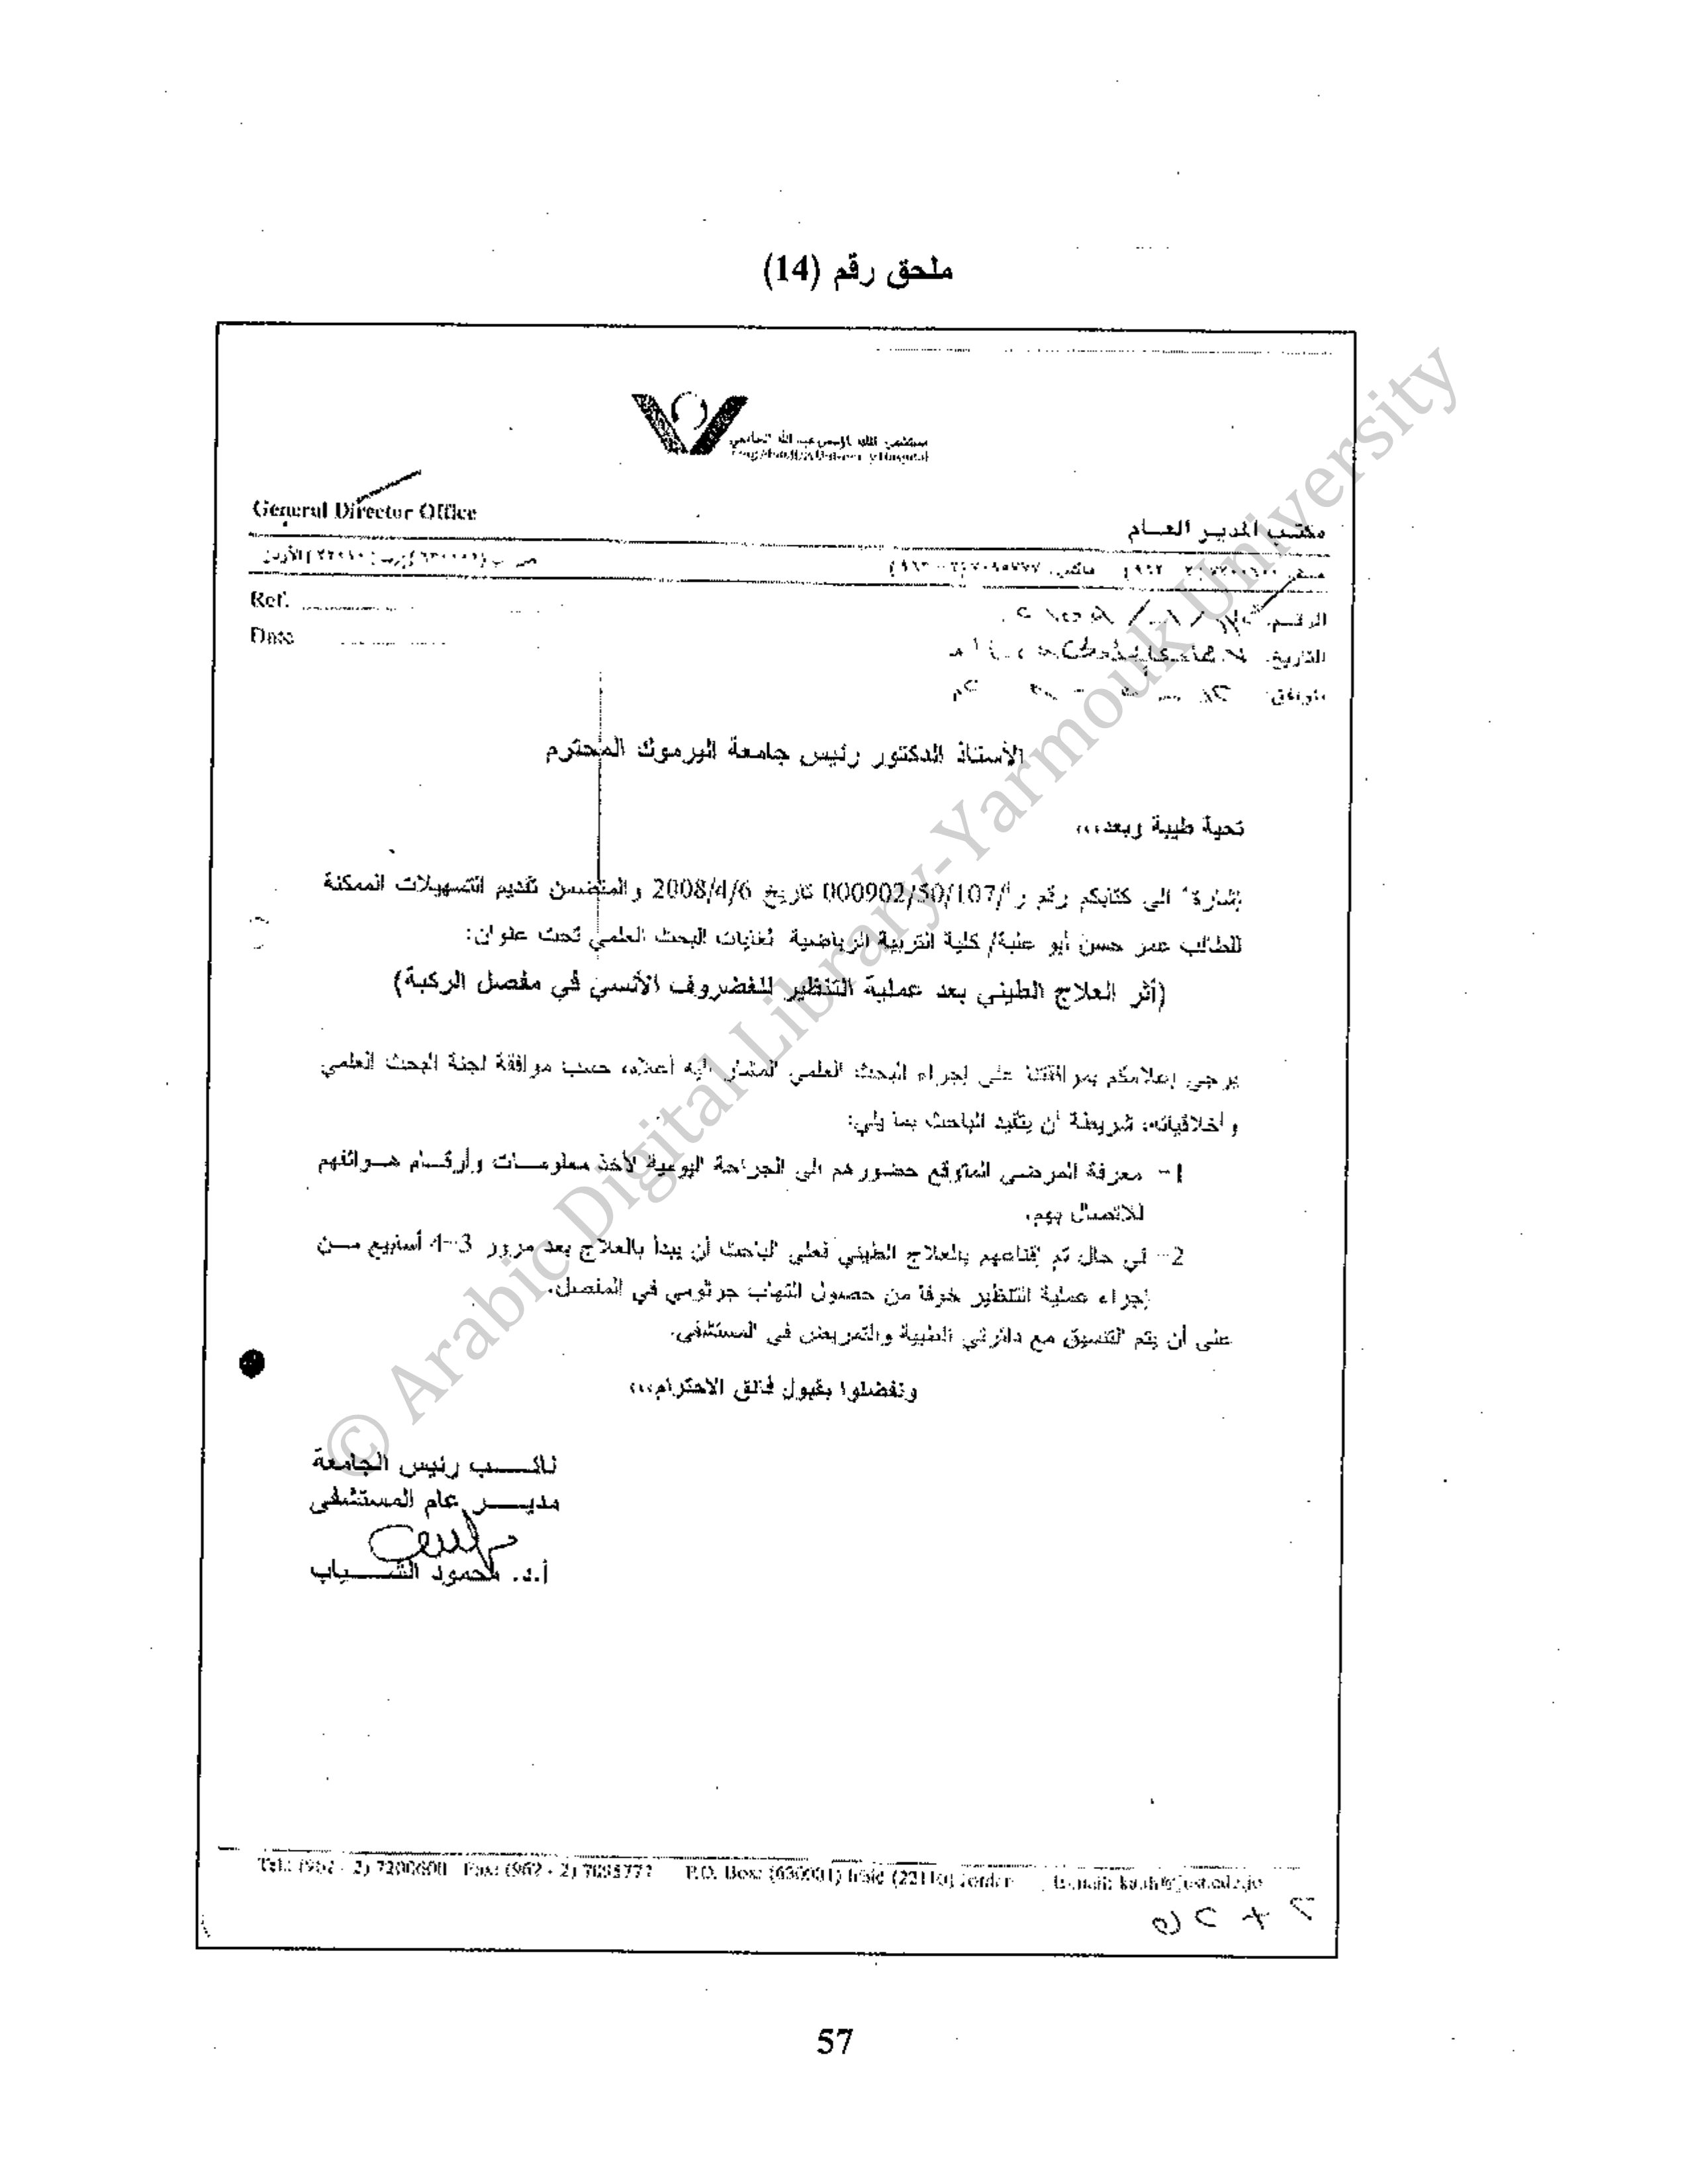 ملحق رقم (14)
مستشفى الملك المؤسس عبد الله الجامعي
King Abdullah University Hospital
General Director Office
مكتب المدير العـام
Ref.
Date
الرقم
التاريخ
الموافق
الأستاذ الدكتور رئيس جامعة اليرموك المحترم
تحية طيبة وبعد،،،
إشارة الى كتابكم رقم ر أ/107/50/000902 تاريخ 2008/4/6 والمتضمن تقديم التسهيلات الممكنة
للطالب عمر حسن أبو علبة/ كلية التربية الرياضية لغايات البحث العلمي تحت عنوان:
(أثر العلاج الطيني بعد عملية التنظير للغضروف الأنسي في مفصل الركبة)
يرجى إعلامكم بموافقتنا على إجراء البحث العلمي المشار اليه أعلاه، حسب موافقة لجنة البحث العلمي
وأخلاقياته، شريطة أن يتقيد الباحث بما يلي:
1- معرفة المرضى المتوقع حضورهم الى الجراحة اليومية لأخذ معلومـات وأرقـام هـواتفهم
للاتصال بهم.
2- في حال تم إقناعهم بالعلاج الطيني فعلى الباحث أن يبدأ بالعلاج بعد مرور 3-4 أسابيع مـن
إجراء عملية التنظير خوفا من حصول التهاب جرثومي في المفصل.
على أن يتم التنسيق مع دائرتي الطبية والتمريض في المستشفى.
وتفضلوا بقبول فائق الاحترام،،،
نائـــب رئيس الجامعة
مديـــر عام المستشفى
أ.د. محمود الشـــياب
Tel.: (962 - 2) 7200600 Fax: (962 - 2) 7095777 P.O. Box: (630001) Irbid (22110) Jordan E-mail: kauh@just.edu.jo
57
© Arabic Digital Library-Yarmouk University